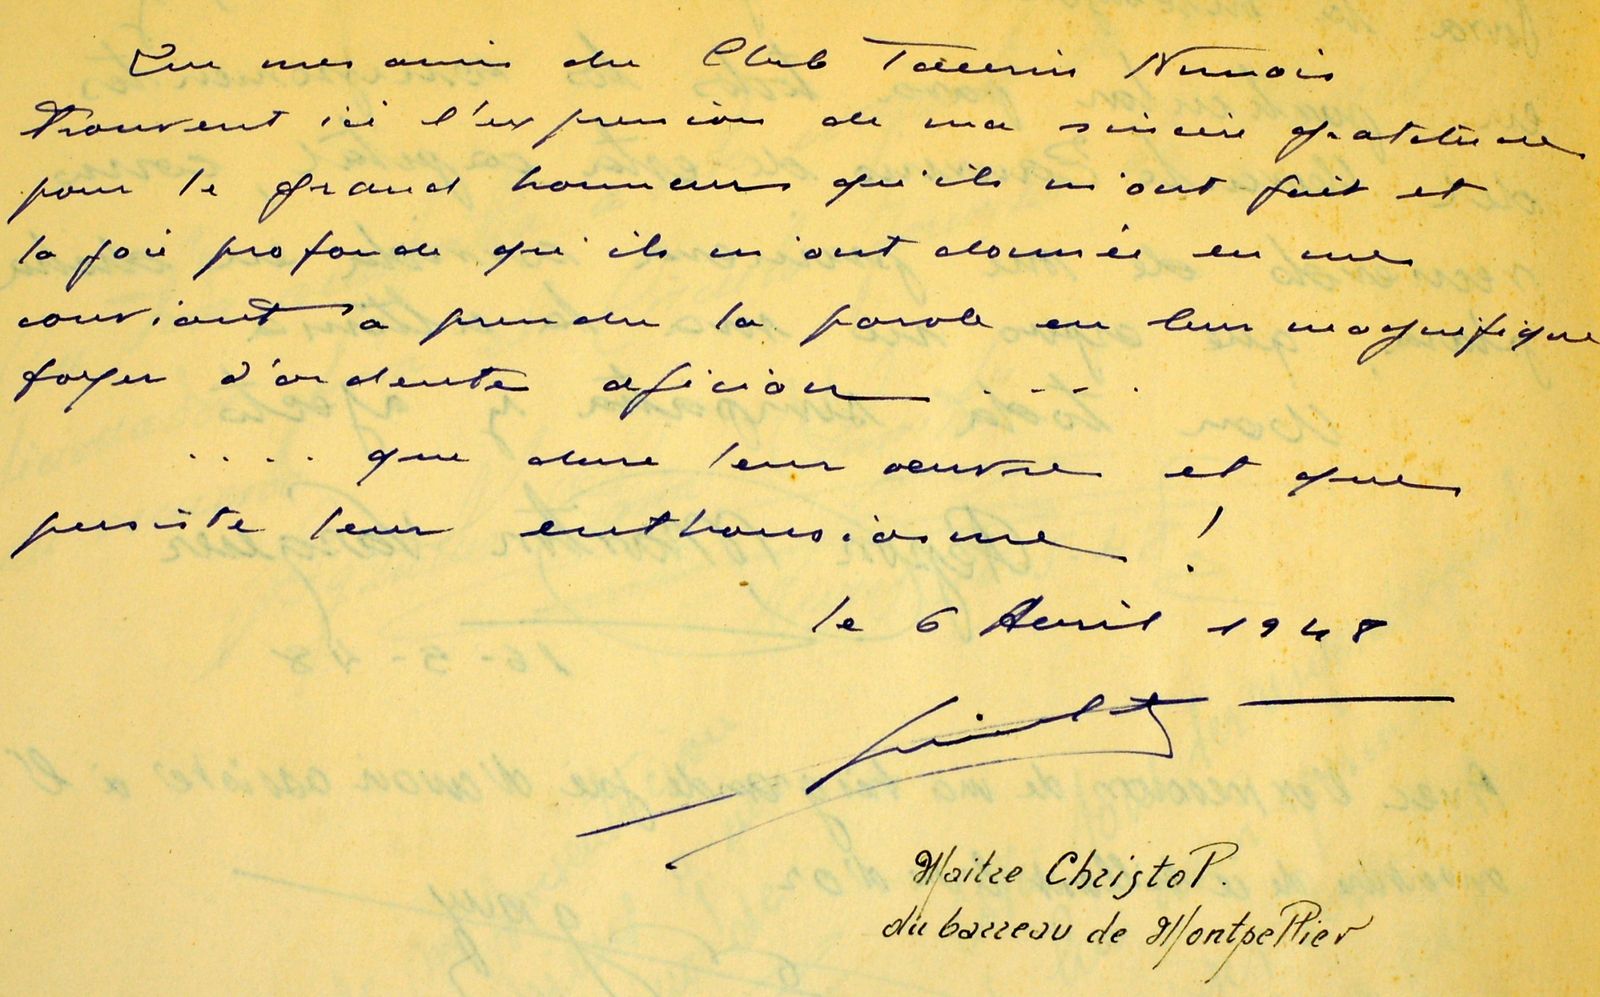 Que mes amis du Club Taurin Nimois
trouvent ici l'expression de ma sincère gratitude
pour le grand honneur qu'ils m'ont fait et
la joie profonde qu'ils m'ont donnée en me
conviant à prendre la parole en leur magnifique
foyer d'ardente aficion ....
.... que dure leur oeuvre et que
persiste leur enthousiasme !
le 6 Avril 1948
Maitre Christol.
du barreau de Montpellier